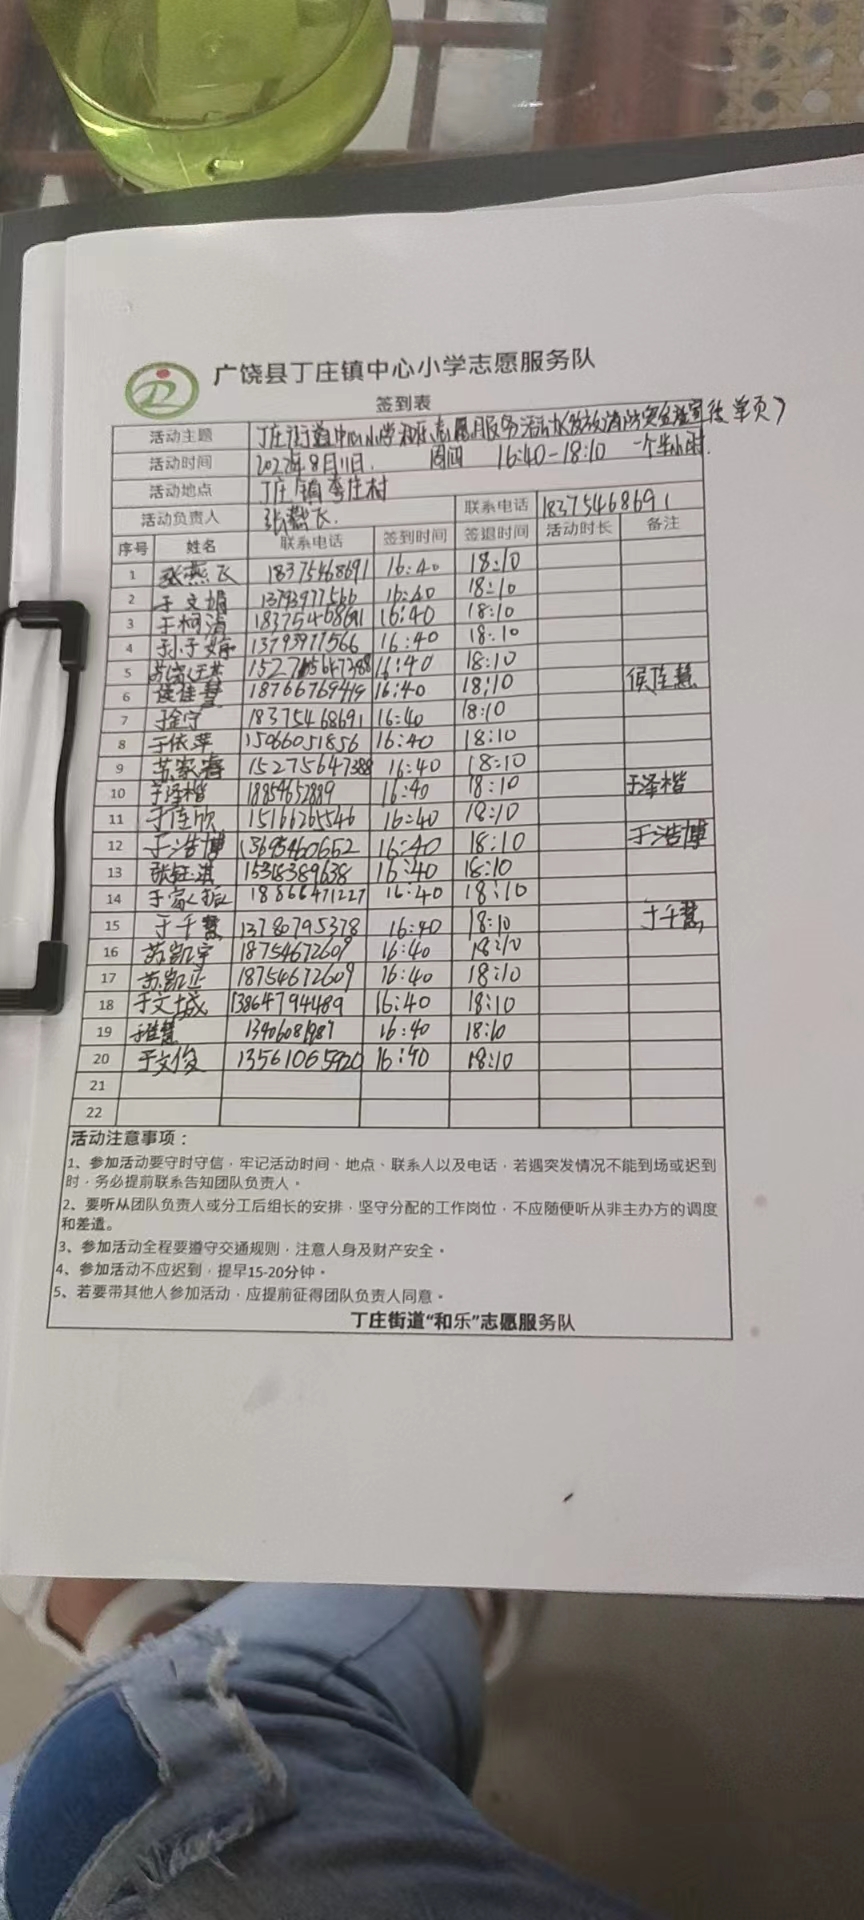 广饶县丁庄镇中心小学志愿服务队
签到表
活动主题 丁庄街道中心小学和乐志愿服务活动(发放消防安全宣传单页)
活动时间 2022年8月11日. 周四 16:40-18:10 一个半小时.
活动地点 丁庄镇李庄村
活动负责人 张燕飞. 联系电话 18375468691
序号 姓名 联系电话 签到时间 签退时间 活动时长 备注
1 张燕飞 18375468691 16:40 18:10
2 于文娟 13793977566 16:40 18:10
3 于柯滢 18375468691 16:40 18:10
4 孙子婷 13793977566 16:40 18:10
5 15275647388 16:40 18:10
6 侯佳慧 18766769419 16:40 18:10 侯佳慧
7 于金宁 18375468691 16:40 18:10
8 于依苹 15066051856 16:40 18:10
9 苏家睿 15275647388 16:40 18:10
10 于泽楷 18854652889 16:40 18:10 于泽楷
11 于佳欣 15166265546 16:40 18:10
12 于浩博 13695460652 16:40 18:10 于浩博
13 张钰淇 15318389638 16:40 18:10
14 于家振 18866471227 16:40 18:10
15 于千慧 13780795378 16:40 18:10 于千慧
16 苏凯宇 18754672609 16:40 18:10
17 苏凯正 18754672609 16:40 18:10
18 于文城 13864794489 16:40 18:10
19 于佳慧 13406081987 16:40 18:10
20 于文俊 13561065920 16:40 18:10
21
22
活动注意事项：
1、参加活动要守时守信，牢记活动时间、地点、联系人以及电话，若遇突发情况不能到场或迟到
时，务必提前联系告知团队负责人。
2、要听从团队负责人或分工后组长的安排，坚守分配的工作岗位，不应随便听从非主办方的调度
和差遣。
3、参加活动全程要遵守交通规则，注意人身及财产安全。
4、参加活动不应迟到，提早15-20分钟。
5、若要带其他人参加活动，应提前征得团队负责人同意。
丁庄街道“和乐”志愿服务队